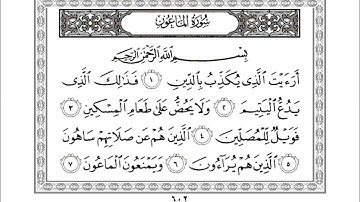 سُورَةُ المَاعُونِ
بِسْمِ اللَّهِ الرَّحْمَٰنِ الرَّحِيمِ
أَرَءَيْتَ الَّذِي يُكَذِّبُ بِالدِّينِ ١ فَذَٰلِكَ الَّذِي
يَدُعُّ الْيَتِيمَ ٢ وَلَا يَحُضُّ عَلَىٰ طَعَامِ الْمِسْكِينِ ٣
فَوَيْلٌ لِّلْمُصَلِّينَ ٤ الَّذِينَ هُمْ عَن صَلَاتِهِمْ سَاهُونَ
٥ الَّذِينَ هُمْ يُرَاءُونَ ٦ وَيَمْنَعُونَ الْمَاعُونَ ٧
٦٠٢